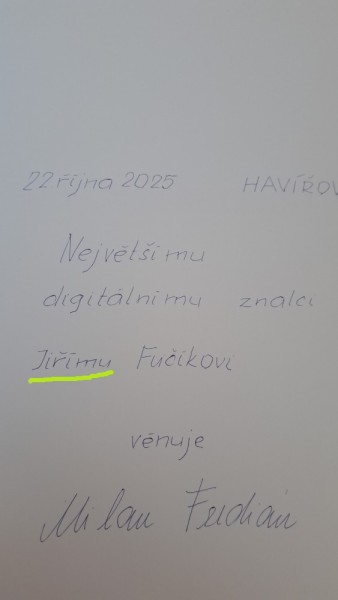 22 října 2025 HAVÍŘOV
Největšímu
digitálnímu znalci
Jiřímu Fučíkovi
věnuje
Milan Ferdian